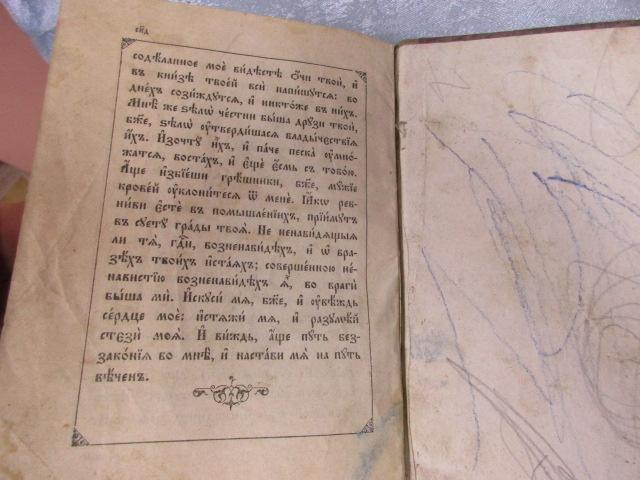 сн҃д
содѣ́ланное моѐ ви́дѣстѣ ѻ҆́чи твоѝ, и҆
въ кни́зѣ твое́й всѝ напи́шутсѧ: во
дне́хъ сози́ждутсѧ, и҆ никто́же въ ни́хъ.
Мнѣ́ же ѕѣлѡ̀ че́стни бы́ша дру́зи твоѝ,
бж҃е, ѕѣлѡ̀ ᲂу҆тверди́шасѧ влады́чєствїѧ
и҆́хъ. И҆зочтꙋ̀ и҆̀хъ, и҆ па́че песка̀ ᲂу҆мно́-
жатсѧ, воста́хъ, и҆ є҆щѐ є҆́смь съ тобо́ю.
А҆́ще и҆збїе́ши грѣ́шники, бж҃е, мꙋ́жїе
крове́й ᲂу҆клони́тесѧ ѿ менє̀. Ꙗ҆́кѡ рев-
ни́ви є҆стѐ въ помышле́нїихъ, прїи́мꙋтъ
въ сꙋетꙋ̀ гра́ды твоѧ̑. Не ненави́дѧщыѧ
ли тѧ̀, гдⷭ҇и, возненави́дѣхъ, и҆ ѡ҆ вра-
зѣ́хъ твои́хъ и҆ста́ѧхъ; соверше́нною не́-
навистїю возненави́дѣхъ ѧ҆̀, во врагѝ
бы́ша мѝ. И҆скꙋси́ мѧ, бж҃е, и҆ ᲂу҆вѣ́ждь
се́рдце моѐ: и҆стѧжи́ мѧ, и҆ разꙋмѣ́й
стєзѝ моѧ̑. И҆ ви́ждь, а҆́ще пꙋ́ть без-
зако́нїѧ во мнѣ̀, и҆ наста́ви мѧ̀ на пꙋ́ть
вѣ́ченъ.